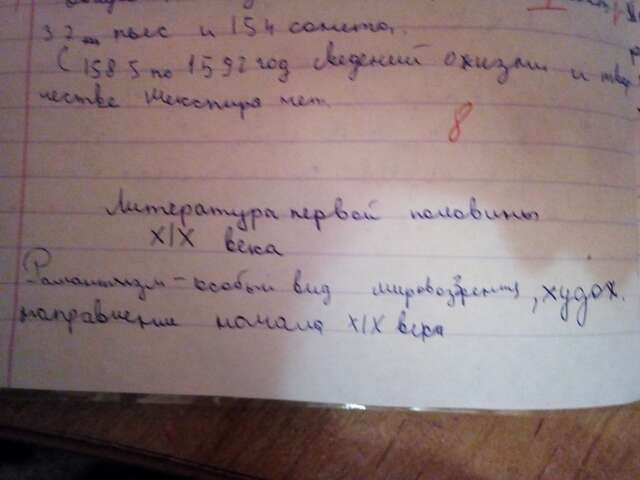 32 пьес и 154 сонета.
С 1585 по 1592 год сведений о жизни и твор
честве Шекспира нет.
8
Литература первой половины
XIX века
Романтизм - особый вид мировоззрения, худож.
направление начала XIX века